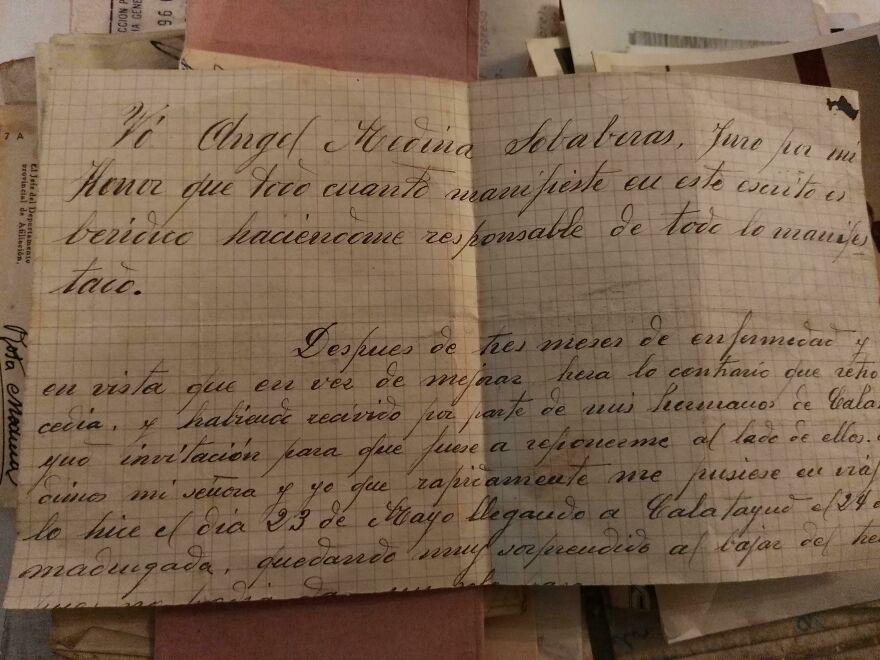 CCION P
IA GENE
96
7 A
El Jefe del Departamento
provincial de Afiliación.
Nota
Yó Angel Medina Sobaberas, Juro por mi
Honor que todo cuanto manifieste en este escrito es
beridico haciendome responsable de todo lo manifes
tado.
Despues de tres meses de enfermedad y
en vista que en vez de mejorar hera lo contrario que retro
cedia, y habiendo recivido por parte de mis hermanos de Cala
yud invitación para que fuese a reponerme al lado de ellos.
dimos mi señora y yo que rapidamente me pusiese en viaj
lo hice el dia 23 de Mayo llegando a Calatayud el 24 d
madrugada, quedando muy sorprendido al bajar del tre